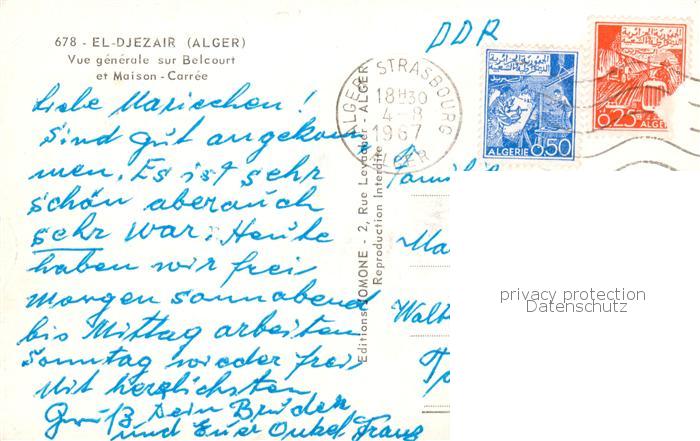 678 - EL-DJEZAIR (ALGER)
Vue générale sur Belcourt
et Maison-Carrée
Liebe Mariechen!
Sind gut angekom
men. Es ist sehr
schön aber auch
sehr war. Heute
haben wir frei
Morgen Sonnabend
bis Mittag arbeiten
Sonntag wieder frei
Mit herzlichsten
Gruß Dein Bruder
und Euer Onkel Franz
Editions JOMONE - 2, Rue Levacher - ALGER
Reproduction Interdite
DDR
ALGER STRASBOURG
18H30
4-8
1967
ALGERIE 0,50
0,25
Familie
Ma
Walt
privacy protection
Datenschutz